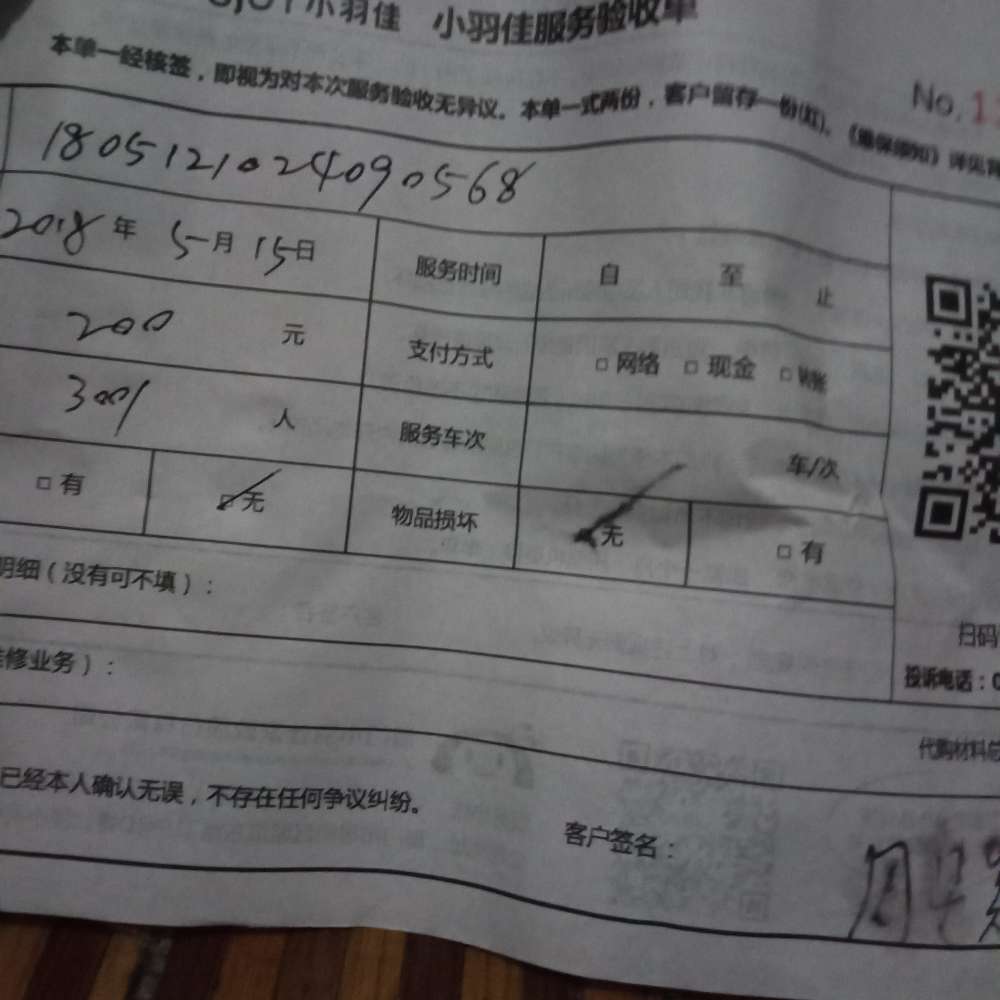 小羽佳 小羽佳服务验收单
No.1
本单一经核签，即视为对本次服务验收无异议。本单一式两份，客户留存一份(红)。《维保须知》详见背
180512102409 0568
2018年 5月 15日 服务时间 自 至 止
200 元 支付方式 □网络 □现金 □
300 人 服务车次 车/次
□有 □无 物品损坏 □无 □有
明细（没有可不填）：
扫码
修业务）：
投诉电话：0
代购材料
已经本人确认无误，不存在任何争议纠纷。
客户签名：
周